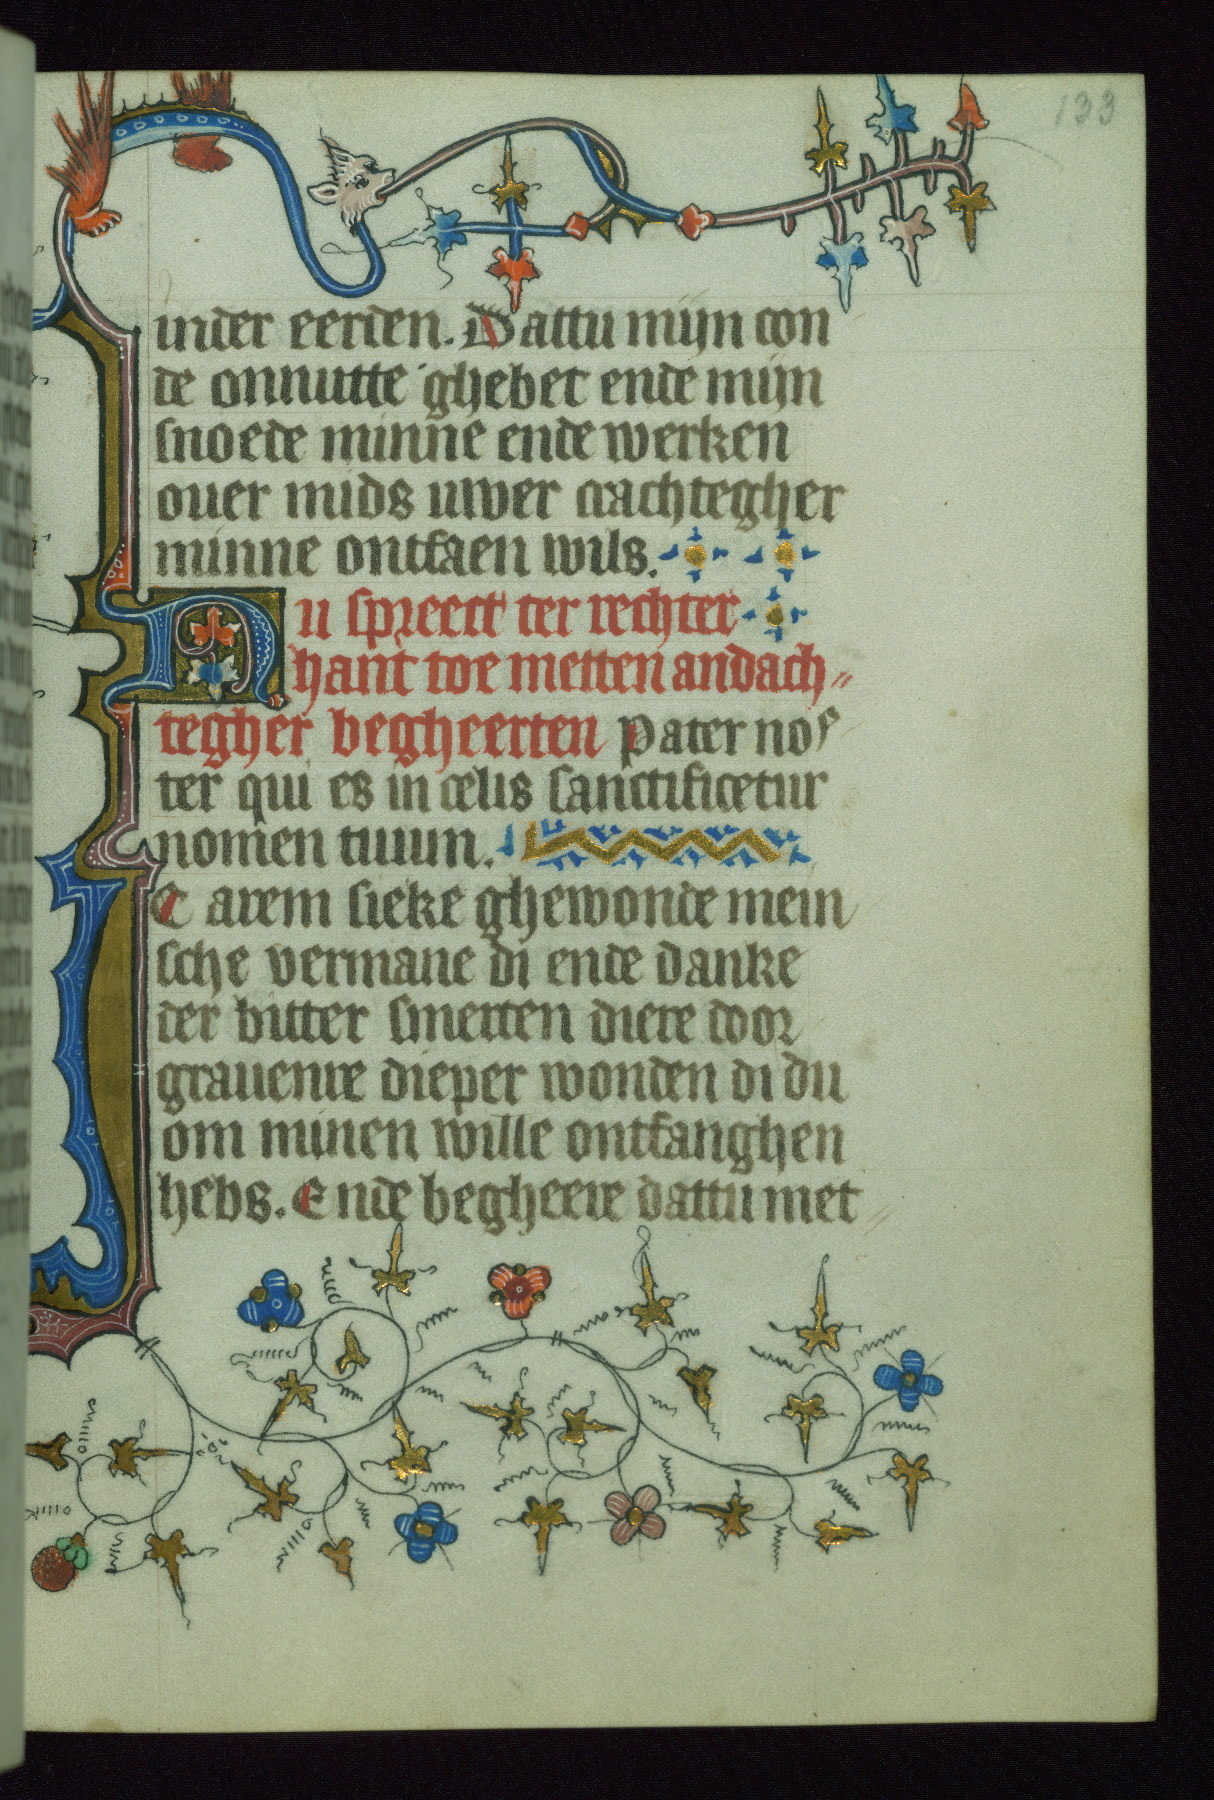 133
inder eerden. Dattu mijn con
de onnutte ghebet ende mijn
snoede minne ende werken
ouer mids uwer crachtegher
minne ontfaen wils.
Nu spreect ter rechter
hant toe metten andach
tegher begheerten Pater nos
ter qui es in celis sanctificetur
nomen tuum.
E arem sieke ghewonde mein
sche vermane di ende danke
der bitter smerten diere door
grauenre dieper wonden di du
om minen wille ontfanghen
hebs. Ende begheere dattu met